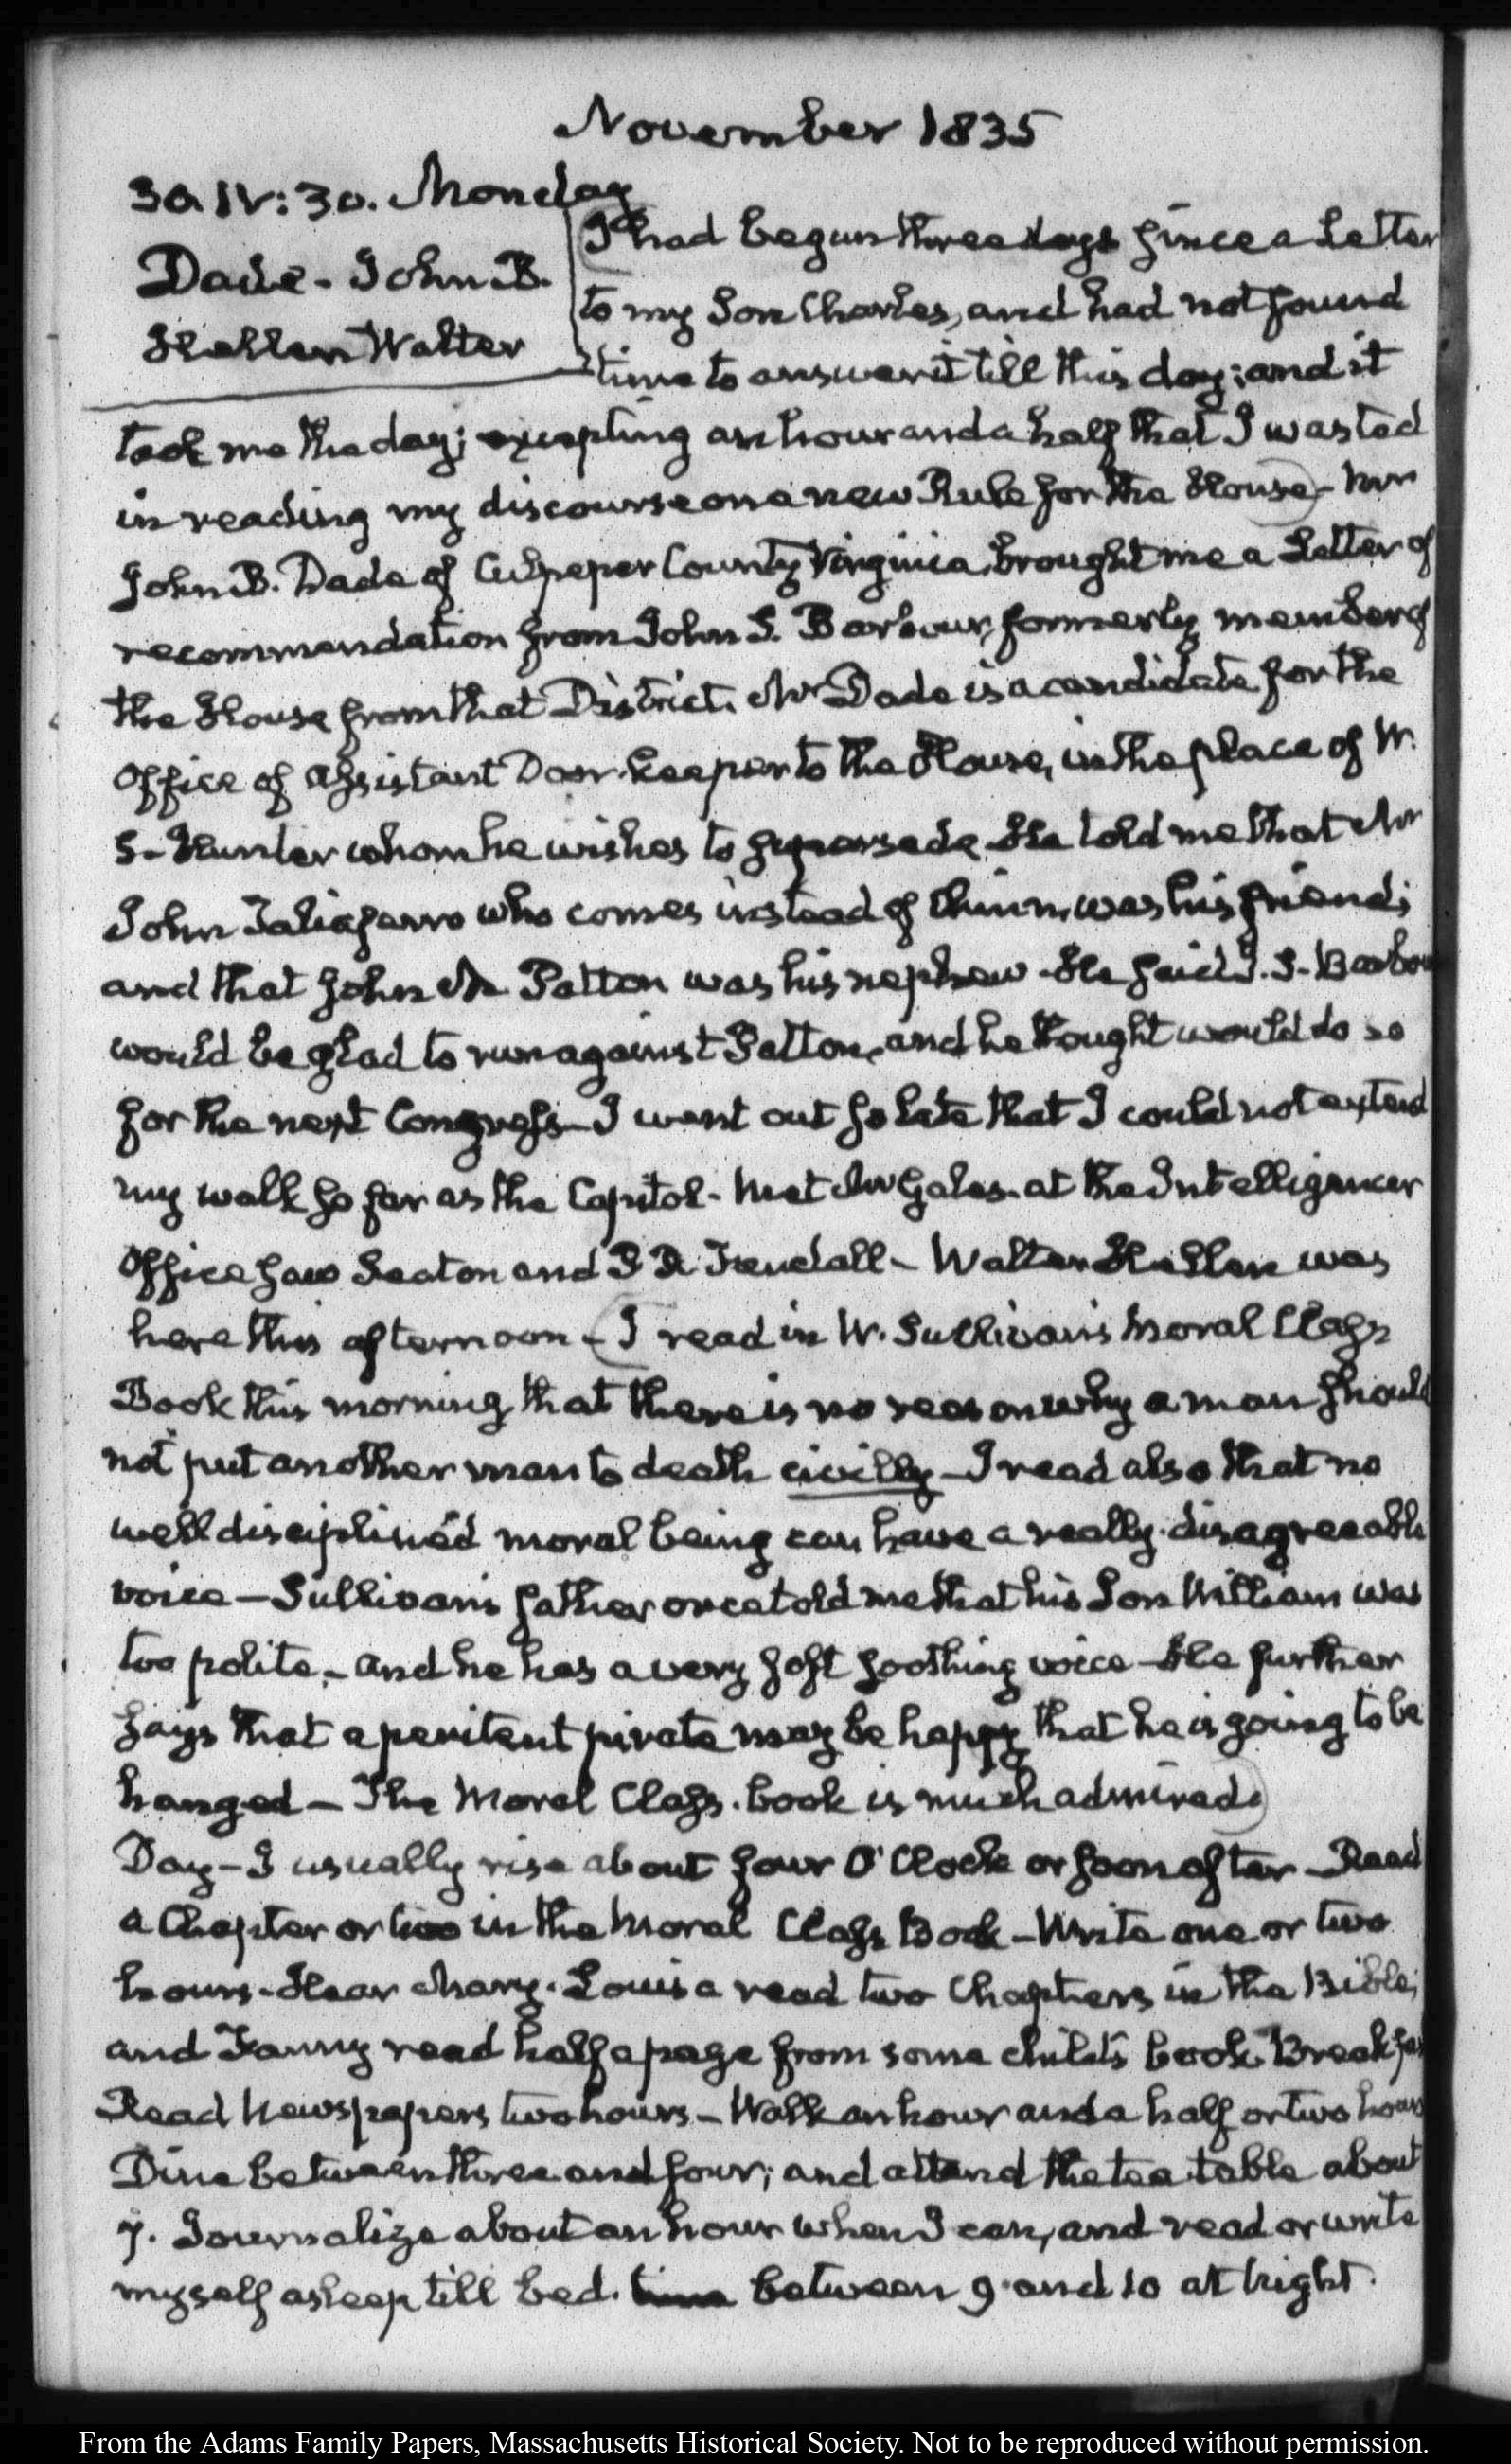 November 1835
30. IV:30. Monday
Dade - John B.
Hellen Walter
I had begun three days since a Letter
to my Son Charles, and had not found
time to answer it till this day; and it
took me the day; excepting an hour and a half that I wasted
in reading my discourse on a new Rule for the House - Mr
John B. Dade of Culpeper County Virginia, brought me a Letter of
recommendation from John S. Barbour, formerly member of
the House from that District. Mr Dade is a candidate for the
Office of Assistant Door-keeper to the House, in the place of W.
S. Hunter whom he wishes to supersede. He told me that Mr
John Taliaferro who comes instead of Chinn, was his friend;
and that John M. Patton was his nephew - He said J. S. Barbour
would be glad to run against Patton, and he thought would do so
for the next Congress - I went out so late that I could not extend
my walk so far as the Capitol - Met Mr Gales - at the Intelligencer
Office saw Seaton and Fendall - Walter Hellen was
here this afternoon - I read in W. Sullivan's Moral Class
Book this morning, that there is no reason why a man should
not put another man to death civilly - I read also that no
well disciplined moral being can have a really disagreeable
voice - Sullivan's father once told me that his Son William was
too polite - and he has a very soft soothing voice - He further
says that a penitent pirate may be happy that he is going to be
hanged - The Moral Class-book is much admired.
Day - I usually rise about four O'Clock or soon after - Read
a Chapter or two in the Moral Class Book - Write one or two
hours - Hear Mary-Louisa read two Chapters in the Bible;
and Fanny read half a page from some child's book. Breakfast
Read Newspapers two hours - Walk an hour and a half or two hours
Dine between three and four; and attend the tea table about
7. Journalize about an hour when I can, and read or write
myself asleep till bed. time between 9 and 10 at Night.
From the Adams Family Papers, Massachusetts Historical Society. Not to be reproduced without permission.